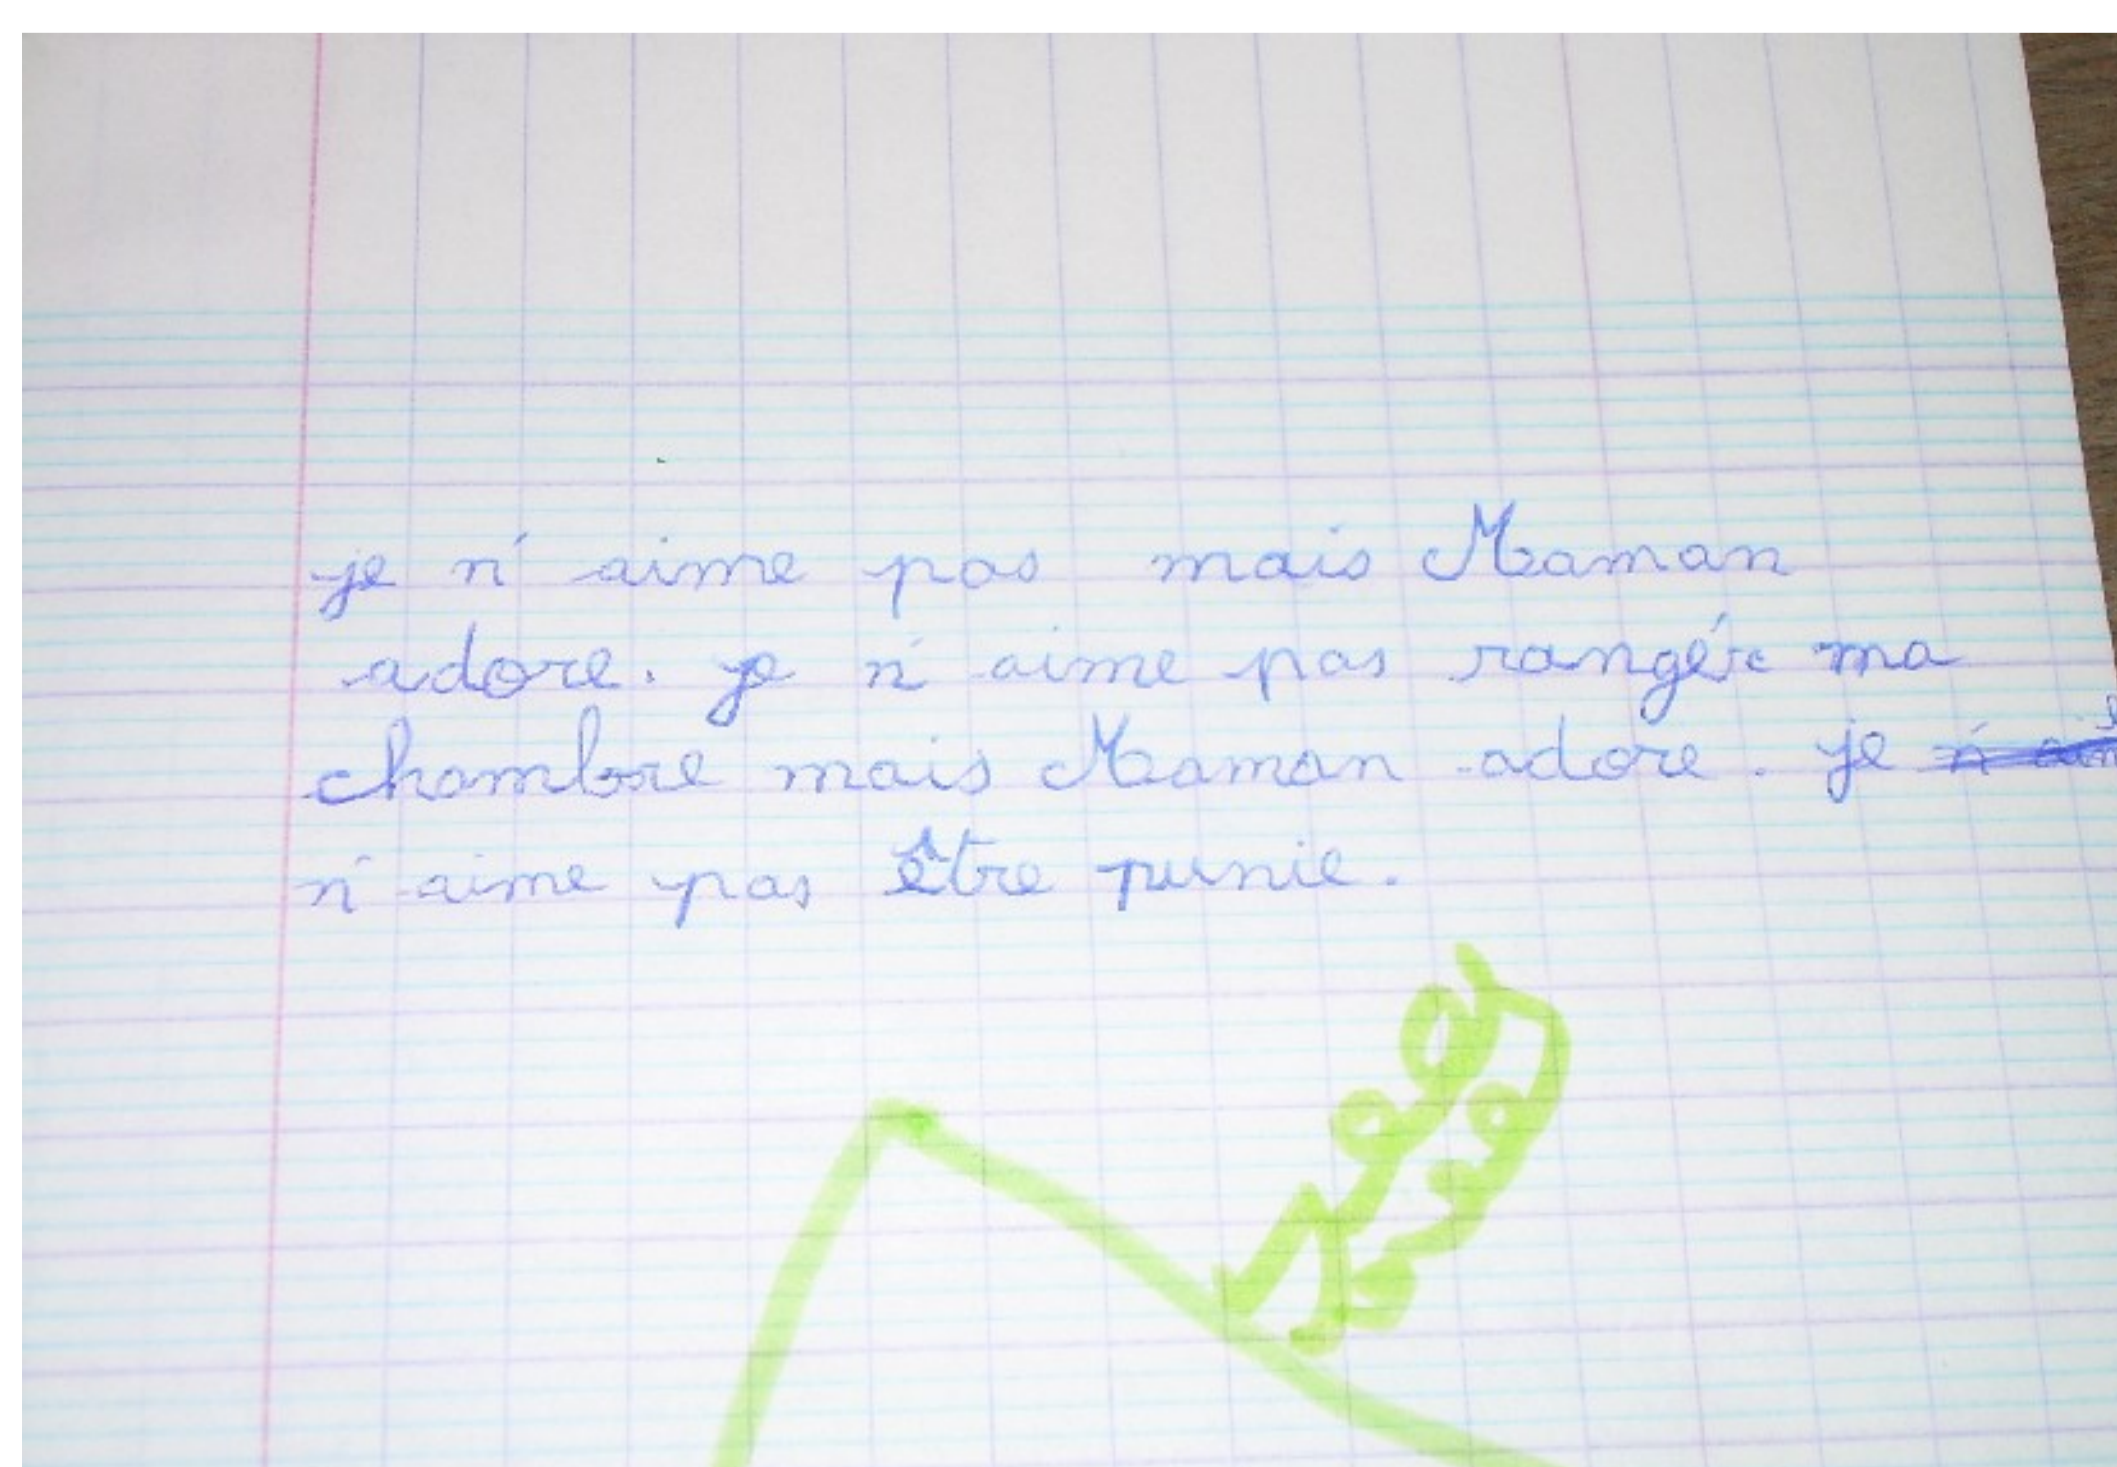 je n'aime pas mais Maman
adore. je n'aime pas rangér ma
chambre mais Maman adore. je
n'aime pas être punie.